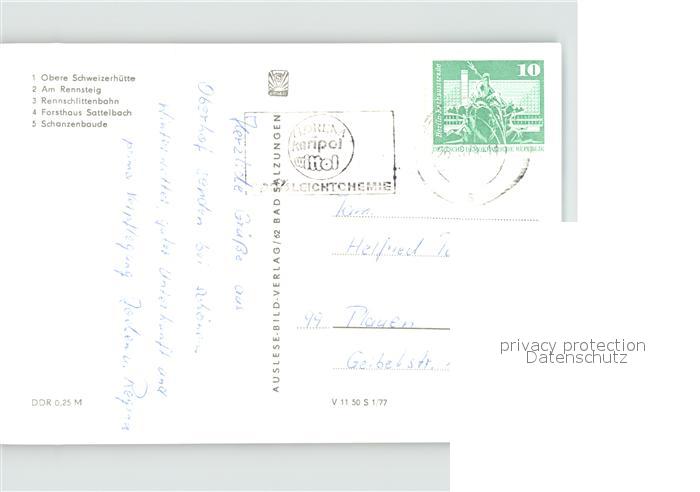 1 Obere Schweizerhütte
2 Am Rennsteig
3 Rennschlittenbahn
4 Forsthaus Sattelbach
5 Schanzenbaude
Herzliche Grüße aus
Oberhof senden bei schönem
Winterwetter, guter Unterkunft und
prima Verpflegung Regina
AUSLESE-BILD-VERLAG/62 BAD SALZUNGEN
DDR 0,25 M
V 11 50 S 1/77
10
DEUTSCHE DEMOKRATISCHE REPUBLIK
karipol
LEICHTCHEMIE
Fam.
Helfried
99 Plauen
Geibelstr.
privacy protection
Datenschutz